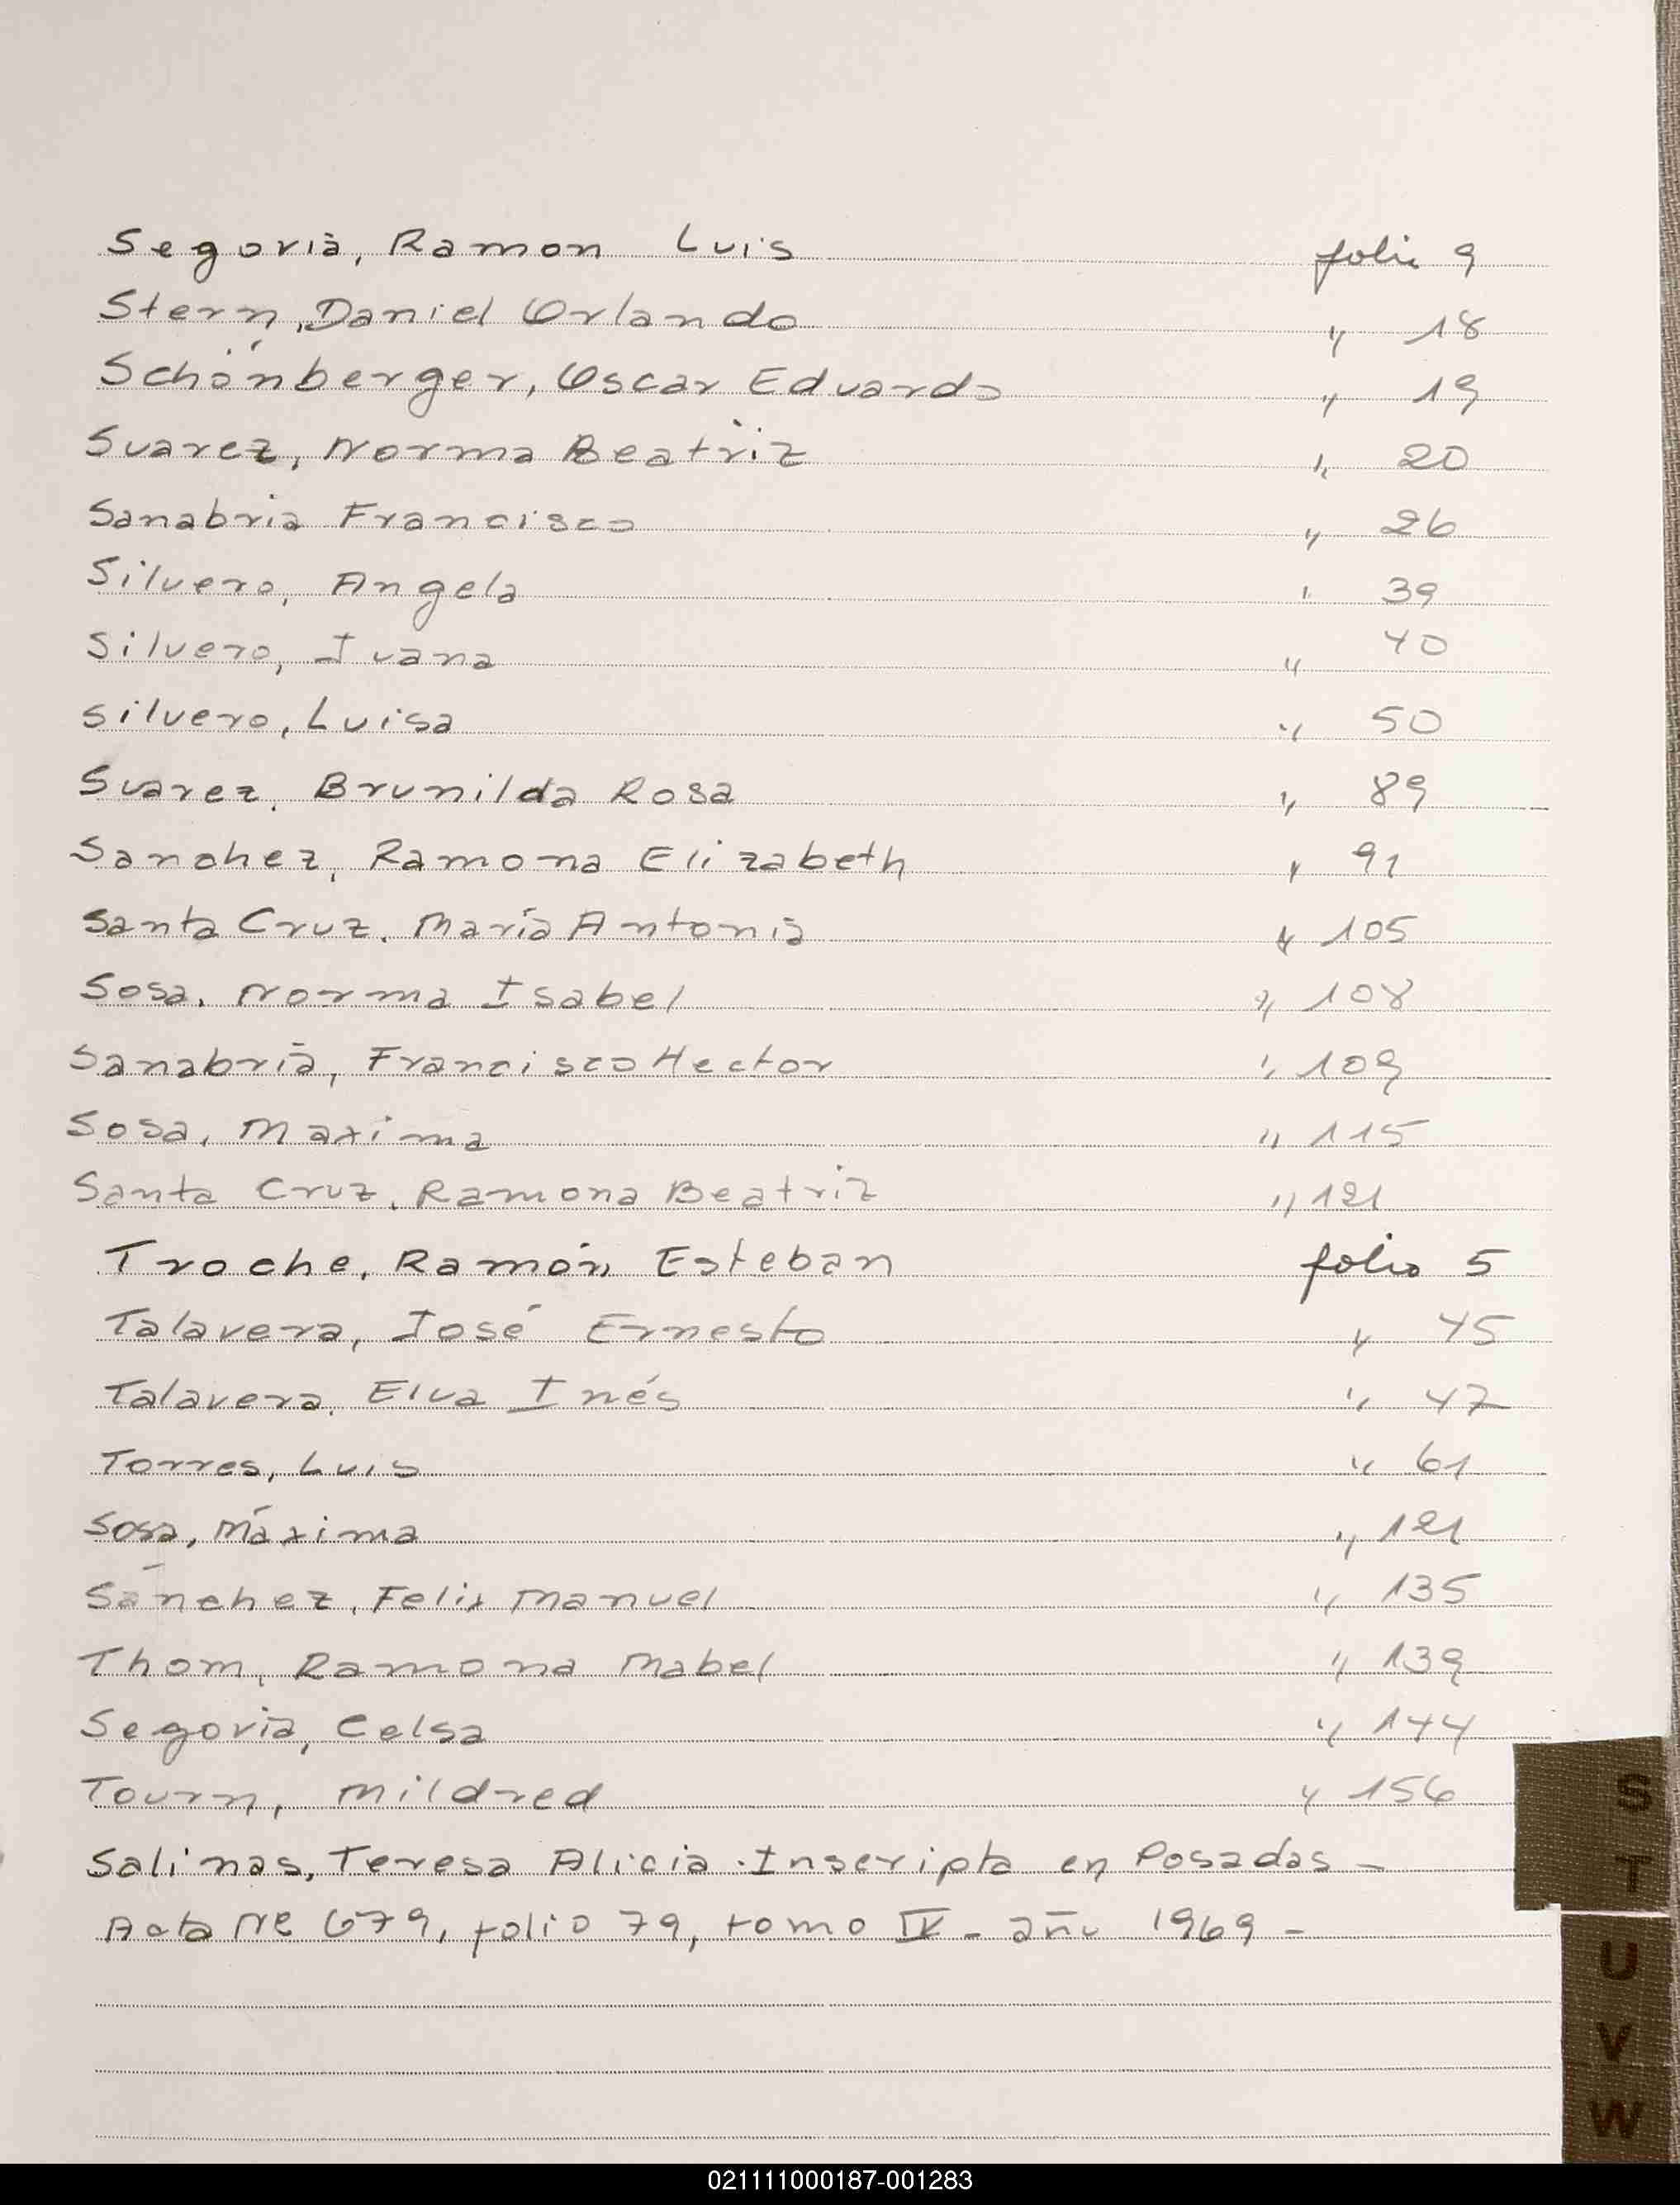 Segovia, Ramon Luis folio 9
Stern, Daniel Orlando " 18
Schönberger, Oscar Eduardo " 19
Suarez, Norma Beatriz " 20
Sanabria Francisco " 26
Silvero, Angela " 39
Silvero, Juana " 40
Silvero, Luisa " 50
Suarez, Brunilda Rosa " 89
Sanchez, Ramona Elizabeth " 91
Santa Cruz, María Antonia " 105
Sosa, Norma Isabel " 108
Sanabria, Francisco Hector " 109
Sosa, Maxima " 115
Santa Cruz, Ramona Beatriz " 121
Troche, Ramón Esteban folio 5
Talavera, José Ernesto " 45
Talavera, Elva Inés " 47
Torres, Luis " 61
Sosa, Máxima " 121
Sánchez, Felix Manuel " 135
Thom, Ramona Mabel " 139
Segovia, Celsa " 144
Tourn, Mildred " 156
Salinas, Teresa Alicia. Inscripta en Posadas -
Acta Nº 679, folio 79, tomo IV - año 1969 -
S
T
U
V
W
021111000187-001283